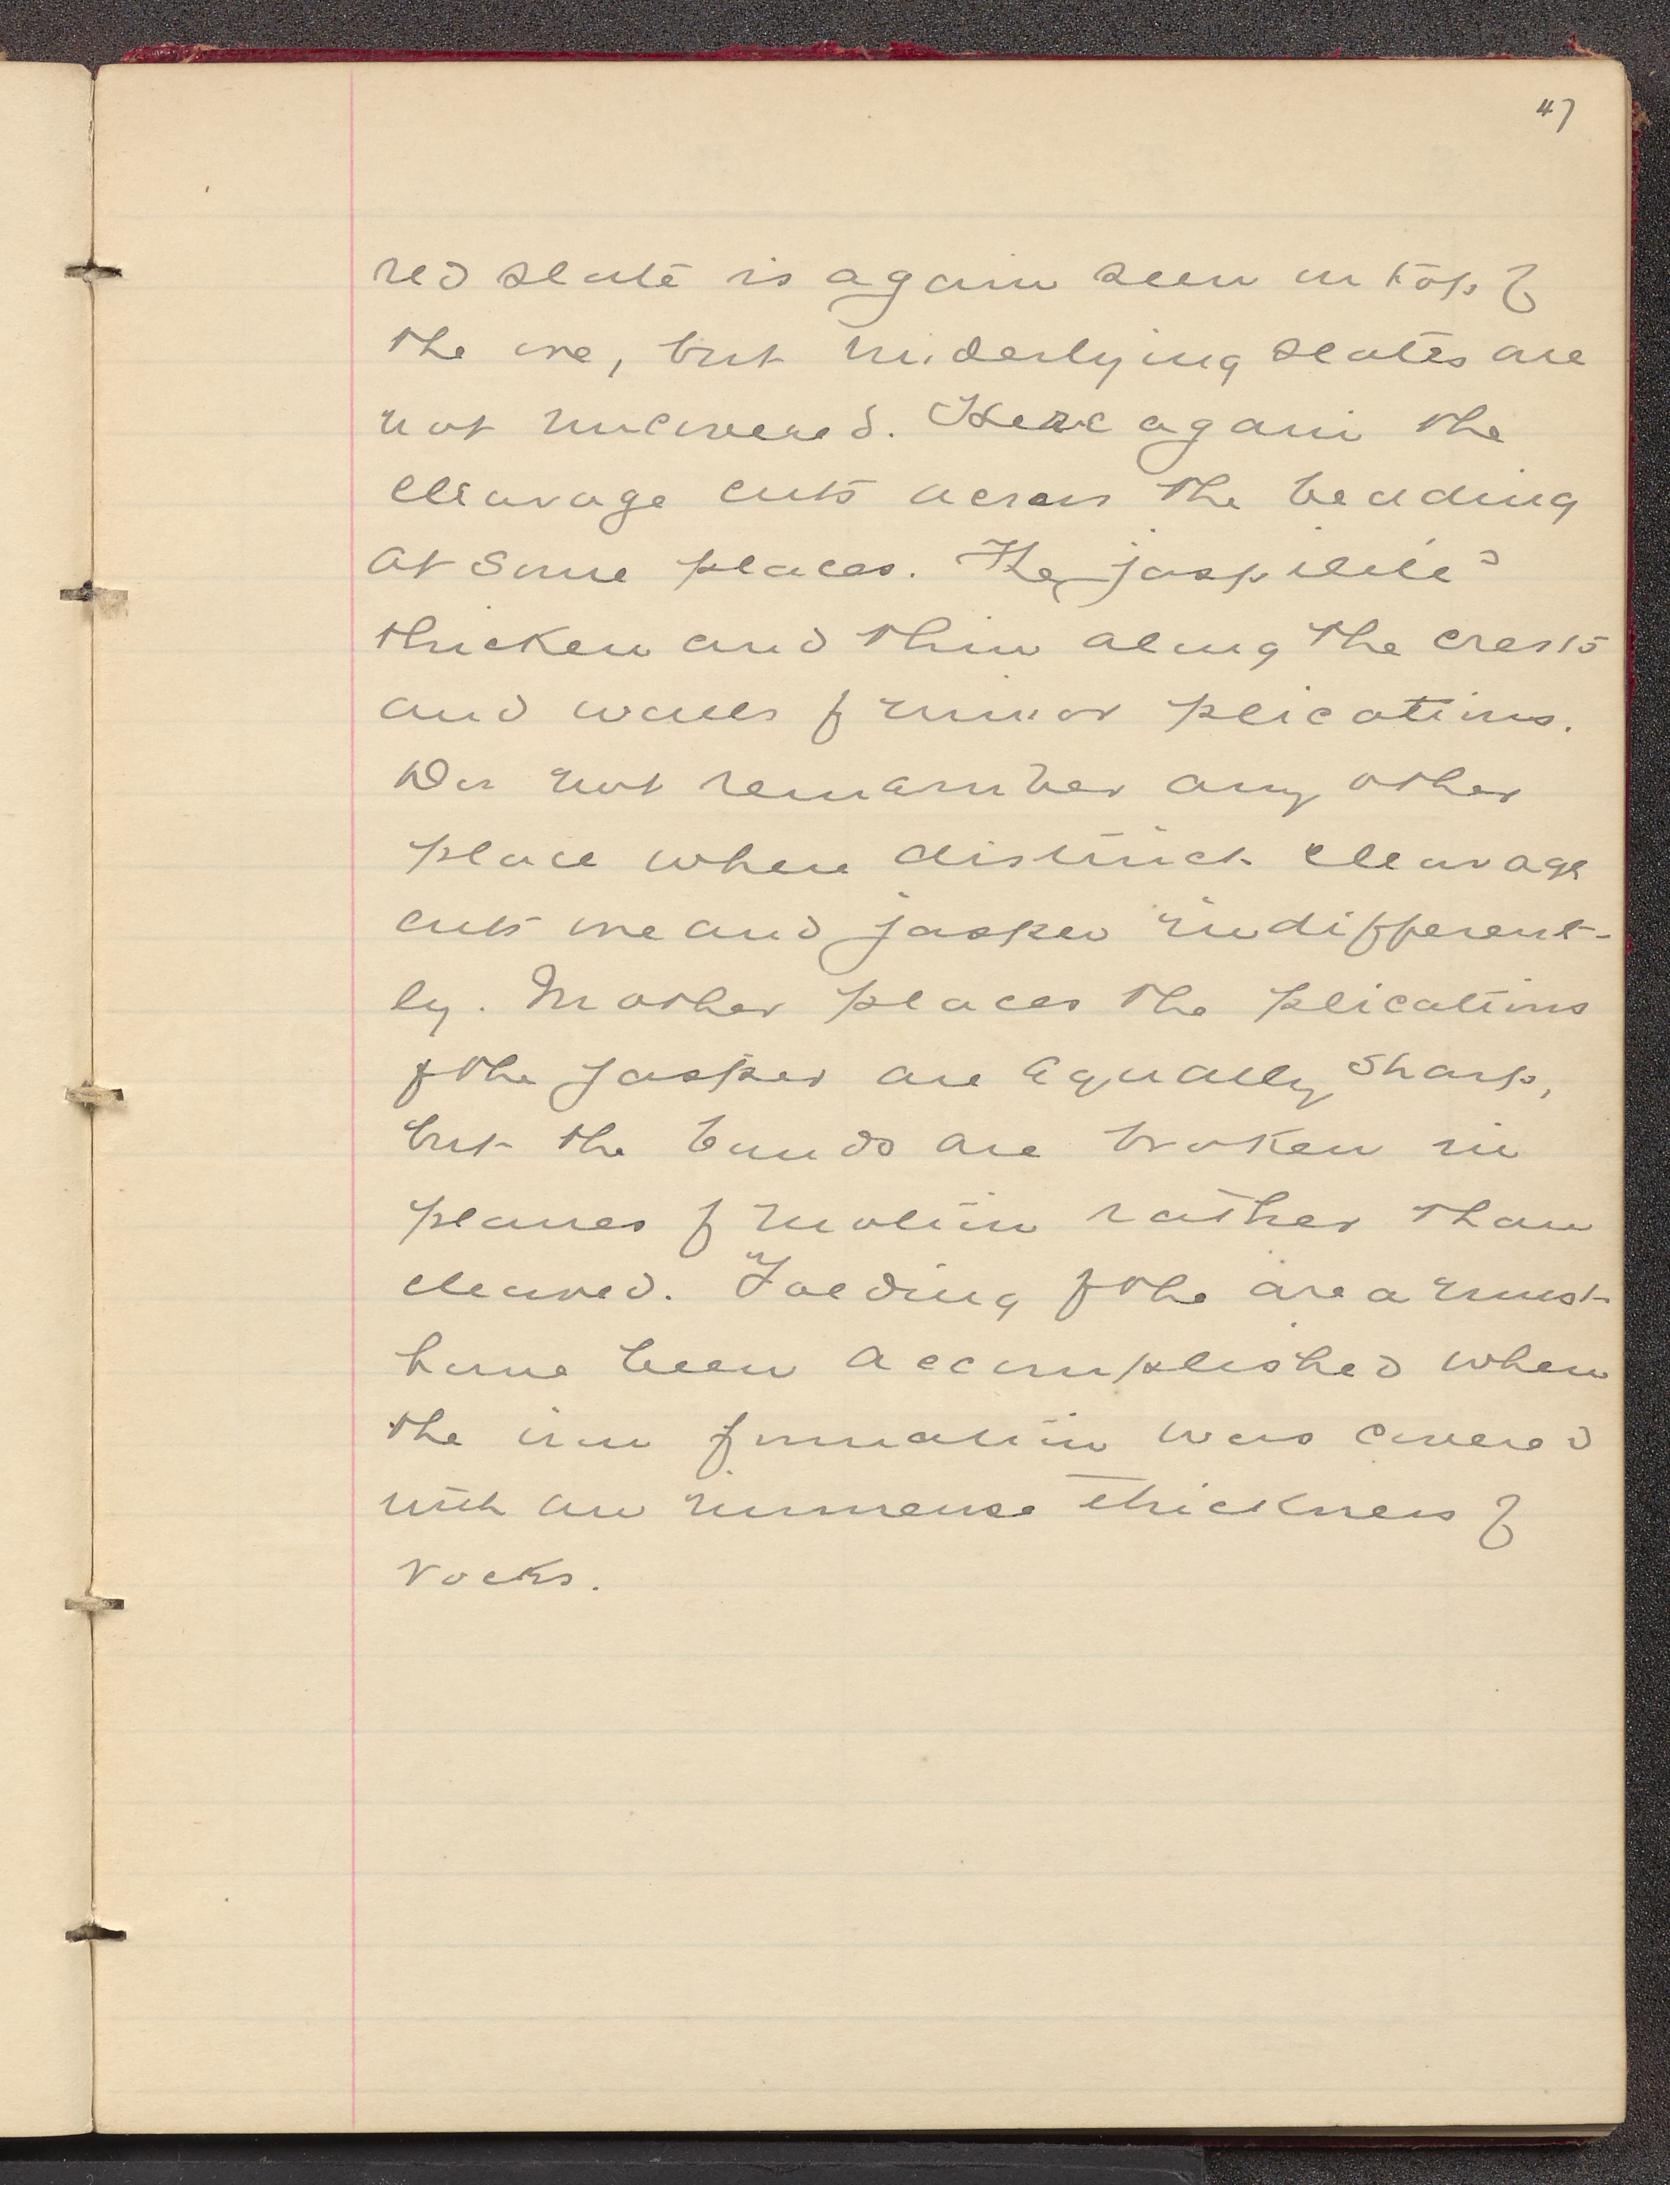 47
red slate is again seen on top of
the ore, but underlying slates are
not uncovered. Here again the
cleavage cuts across the beading
at some places. The jaspilites
thicken and thin along the crests
and walls of minor plications.
Do not remember any other
place where distinct cleavage
cuts ore and jasper indifferent-
ly. In other places the plications
of the jasper are equally sharp,
but the bands are broken in
planes of motion rather than
cleaved. Folding of the area must
have been accomplished when
the iron formation was covered
with an immense thickness of
rocks.